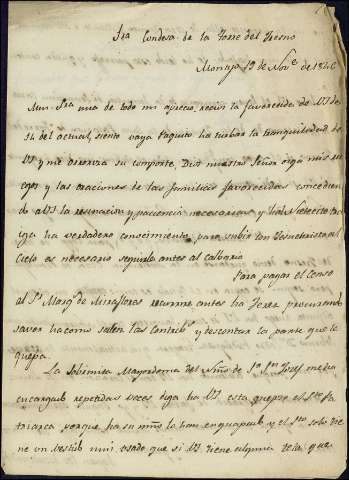 Sra Condesa de la Torre del Fresno
19 de Nove de 1846
Sra mia de todo mi aprecio, recivi la favorecida de VS de
14 del actual, siento vaya Paquito ha turbar la tranquilidad de
VS y me su Dios nuestro Señor oiga mis rue
gos y las oraciones de las familias favorecidas concedien
do a VS la resinacion y paciencia necesarias y
ga ha verdadero conocimiento, para subir con Jesucristo al
Cielo es necesario seguirle antes al calbario
Para pagar el Censo
al Sr Marqs de Miraflores antes ha Jerez procurando
saver ha como salen las Contribs y descontar la parte que le
quepa.
La Sobrinita Mayordoma del Niño de Sn Jose me ha
encargado repetidas veces diga ha VS esta el Sto Pa
triarca porque ha su niño lo han enguapado y el Sto solo tie
ne un vestido mui usado que si VS tiene alguna tela que